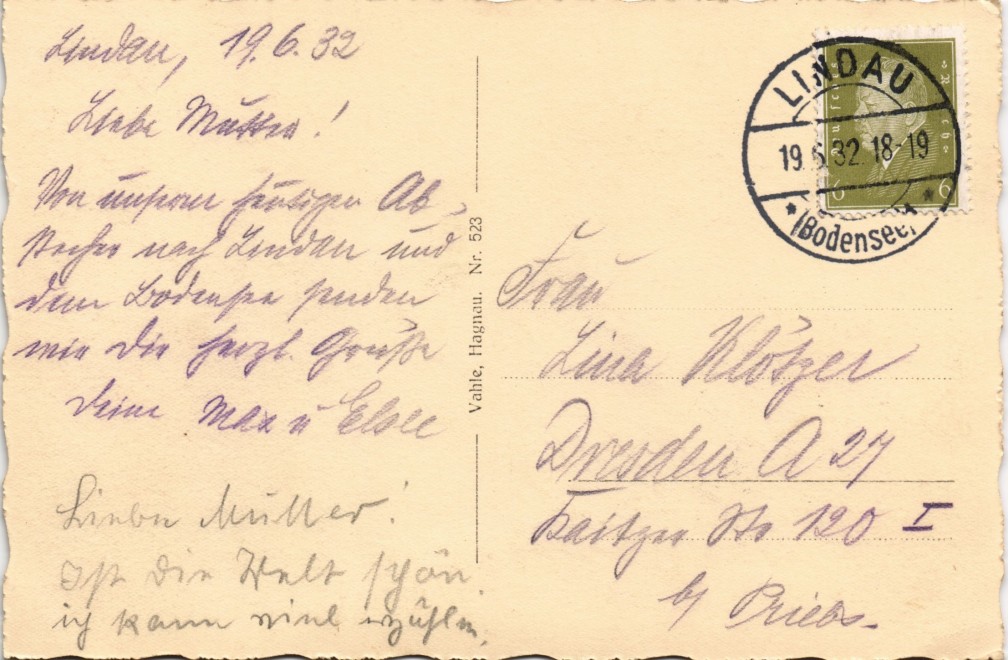 Lindau, 19.6.32
Liebe Mutter!
Von unserem heutigen Ab-
stecher nach Lindau und
dem Bodensee senden
wir die herzl. Grüße
Deine Max u Else
Liebe Mutter!
Ist die Welt schön.
ich kann viel erzählen.
Vahle, Hagnau. Nr. 523
LINDAU
19.6.32.18-19
* (Bodensee) *
Deutsches Reich
6 6
Frau
Lina Klötzer
Dresden A 27
Kaitzer Str 120 I
b/ Priebs.